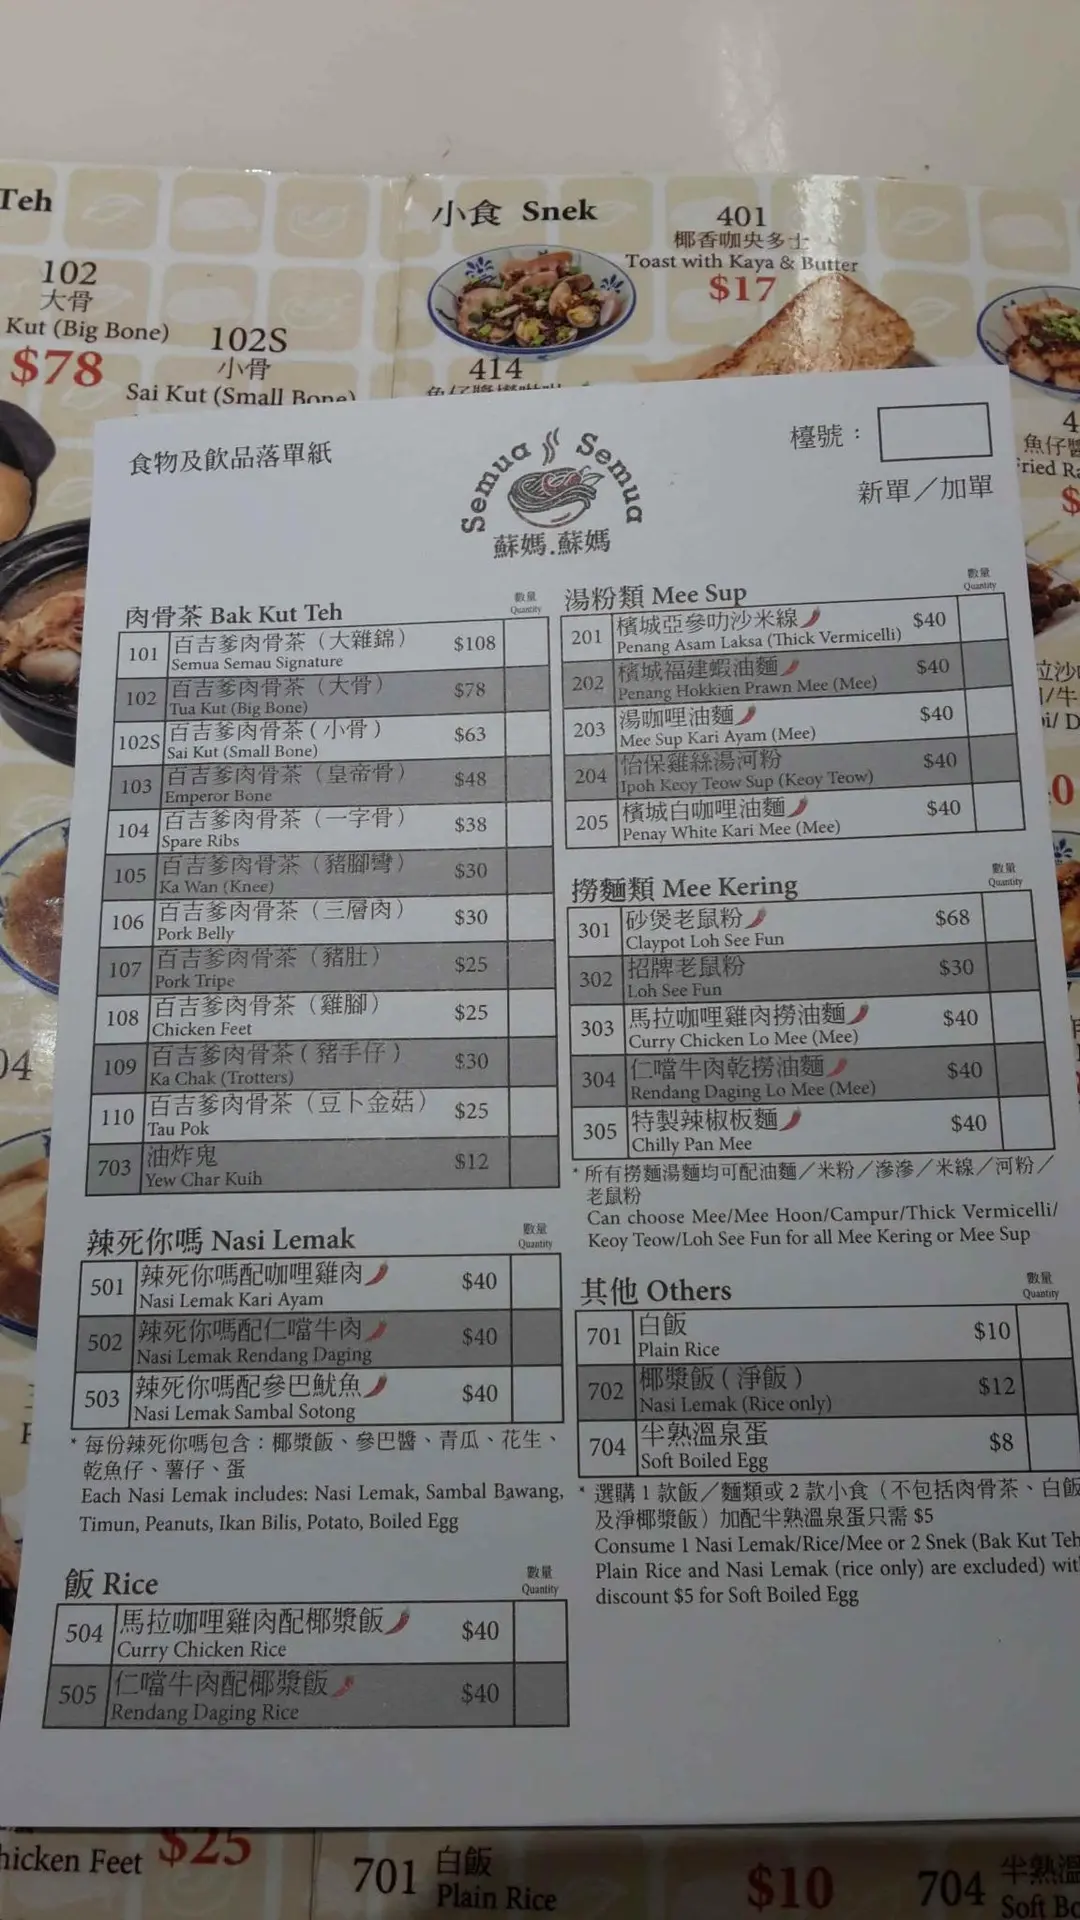 Teh
102
大骨
Kut (Big Bone)
$78
102S
小骨
Sai Kut (Small Bone)
小食 Snek
414
401
椰香咖央多士
Toast with Kaya & Butter
$17
魚仔醬
食物及飲品落單紙
Semua Semua
蘇媽.蘇媽
檯號：
新單／加單
肉骨茶 Bak Kut Teh
數量
Quantity
101 百吉爹肉骨茶（大雜錦） $108
Semua Semau Signature
102 百吉爹肉骨茶（大骨） $78
Tua Kut (Big Bone)
102S 百吉爹肉骨茶（小骨） $63
Sai Kut (Small Bone)
103 百吉爹肉骨茶（皇帝骨） $48
Emperor Bone
104 百吉爹肉骨茶（一字骨） $38
Spare Ribs
105 百吉爹肉骨茶（豬腳彎） $30
Ka Wan (Knee)
106 百吉爹肉骨茶（三層肉） $30
Pork Belly
107 百吉爹肉骨茶（豬肚） $25
Pork Tripe
108 百吉爹肉骨茶（雞腳） $25
Chicken Feet
109 百吉爹肉骨茶（豬手仔） $30
Ka Chak (Trotters)
110 百吉爹肉骨茶（豆卜金菇） $25
Tau Pok
703 油炸鬼 $12
Yew Char Kuih
辣死你嗎 Nasi Lemak
數量
Quantity
501 辣死你嗎配咖哩雞肉 $40
Nasi Lemak Kari Ayam
502 辣死你嗎配仁噹牛肉 $40
Nasi Lemak Rendang Daging
503 辣死你嗎配參巴魷魚 $40
Nasi Lemak Sambal Sotong
* 每份辣死你嗎包含：椰漿飯、參巴醬、青瓜、花生、
乾魚仔、薯仔、蛋
Each Nasi Lemak includes: Nasi Lemak, Sambal Bawang,
Timun, Peanuts, Ikan Bilis, Potato, Boiled Egg
飯 Rice
數量
Quantity
504 馬拉咖哩雞肉配椰漿飯 $40
Curry Chicken Rice
505 仁噹牛肉配椰漿飯 $40
Rendang Daging Rice
湯粉類 Mee Sup
數量
Quantity
201 檳城亞參叻沙米線 $40
Penang Asam Laksa (Thick Vermicelli)
202 檳城福建蝦油麵 $40
Penang Hokkien Prawn Mee (Mee)
203 湯咖哩油麵 $40
Mee Sup Kari Ayam (Mee)
204 怡保雞絲湯河粉 $40
Ipoh Keoy Teow Sup (Keoy Teow)
205 檳城白咖哩油麵 $40
Penay White Kari Mee (Mee)
撈麵類 Mee Kering
數量
Quantity
301 砂煲老鼠粉 $68
Claypot Loh See Fun
302 招牌老鼠粉 $30
Loh See Fun
303 馬拉咖哩雞肉撈油麵 $40
Curry Chicken Lo Mee (Mee)
304 仁噹牛肉乾撈油麵 $40
Rendang Daging Lo Mee (Mee)
305 特製辣椒板麵 $40
Chilly Pan Mee
* 所有撈麵湯麵均可配油麵／米粉／滲滲／米線／河粉／
老鼠粉
Can choose Mee/Mee Hoon/Campur/Thick Vermicelli/
Keoy Teow/Loh See Fun for all Mee Kering or Mee Sup
其他 Others
數量
Quantity
701 白飯 $10
Plain Rice
702 椰漿飯（淨飯） $12
Nasi Lemak (Rice only)
704 半熟溫泉蛋 $8
Soft Boiled Egg
* 選購 1 款飯／麵類或 2 款小食（不包括肉骨茶、白飯
及淨椰漿飯）加配半熟溫泉蛋只需 $5
Consume 1 Nasi Lemak/Rice/Mee or 2 Snek (Bak Kut Teh
Plain Rice and Nasi Lemak (rice only) are excluded) wit
discount $5 for Soft Boiled Egg
hicken Feet
$25
701
白飯
Plain Rice
$10
704
半熟溫
Soft Bo